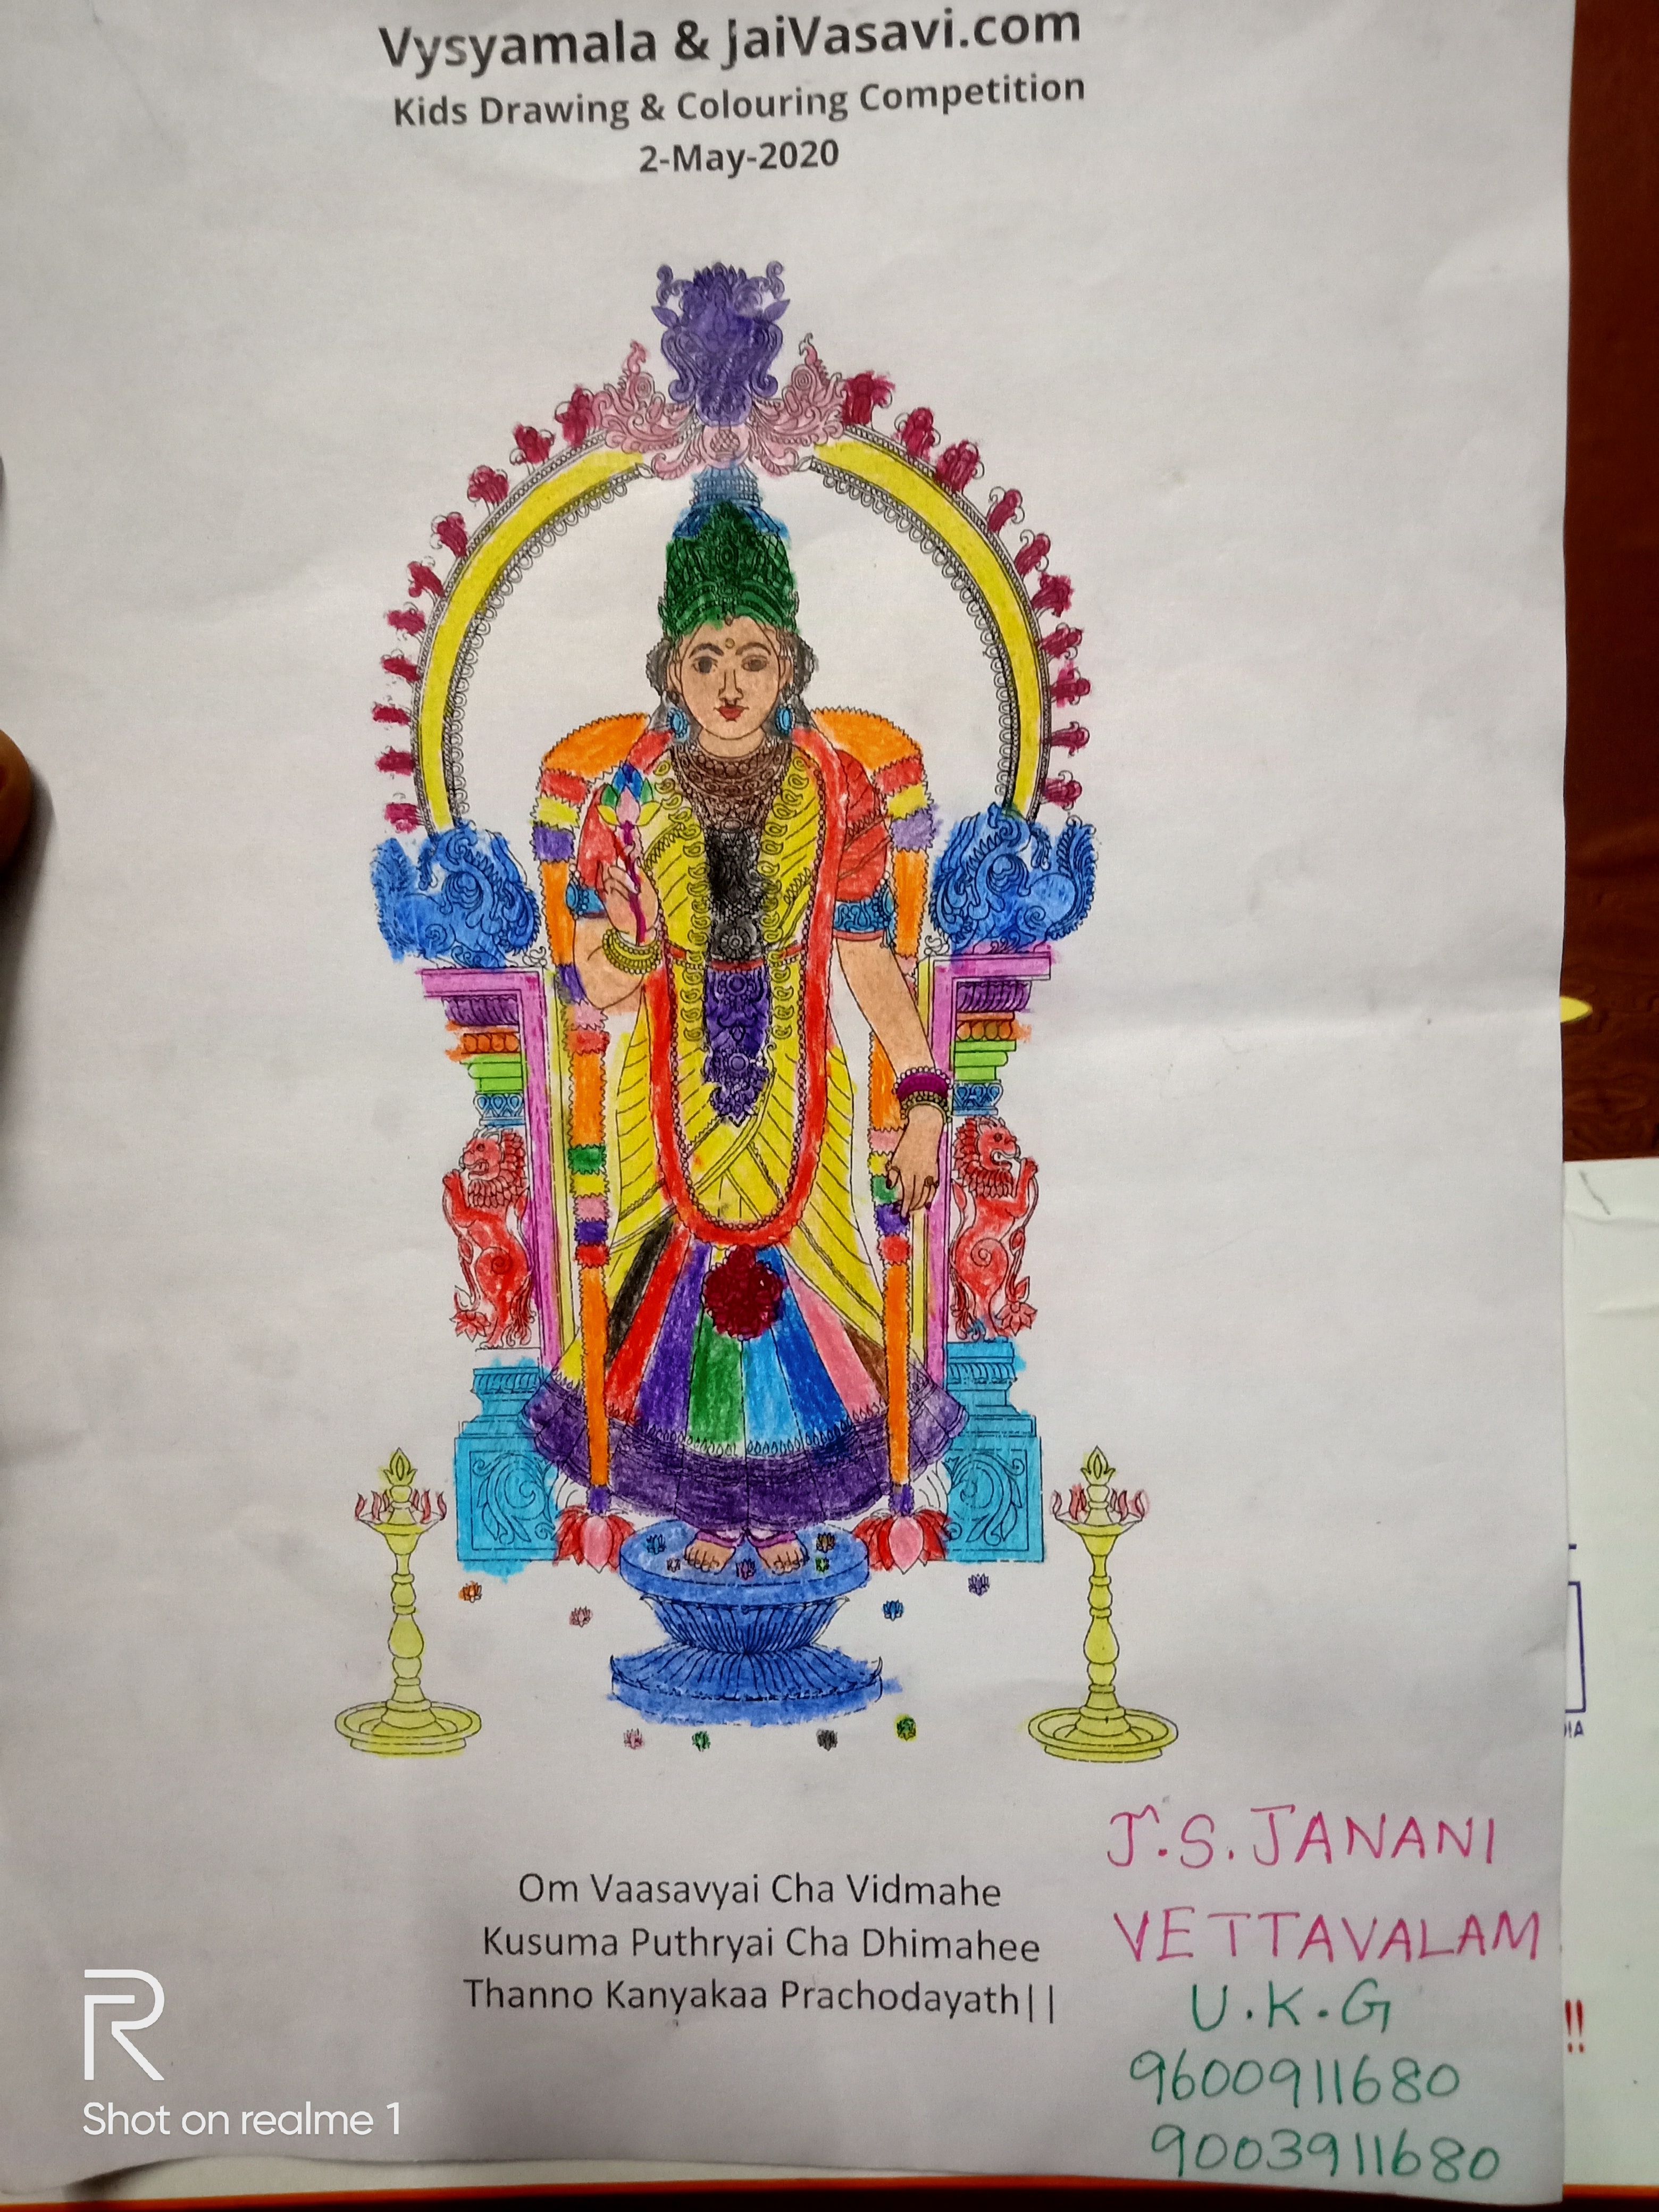 Vysyamala & JaiVasavi.com
Kids Drawing & Colouring Competition
2-May-2020
Om Vaasavyai Cha Vidmahe
Kusuma Puthryai Cha Dhimahee
Thanno Kanyakaa Prachodayath||
J.S.JANANI
VETTAVALAM
U.K.G
9600911680
9003911680
!!
R
Shot on realme 1